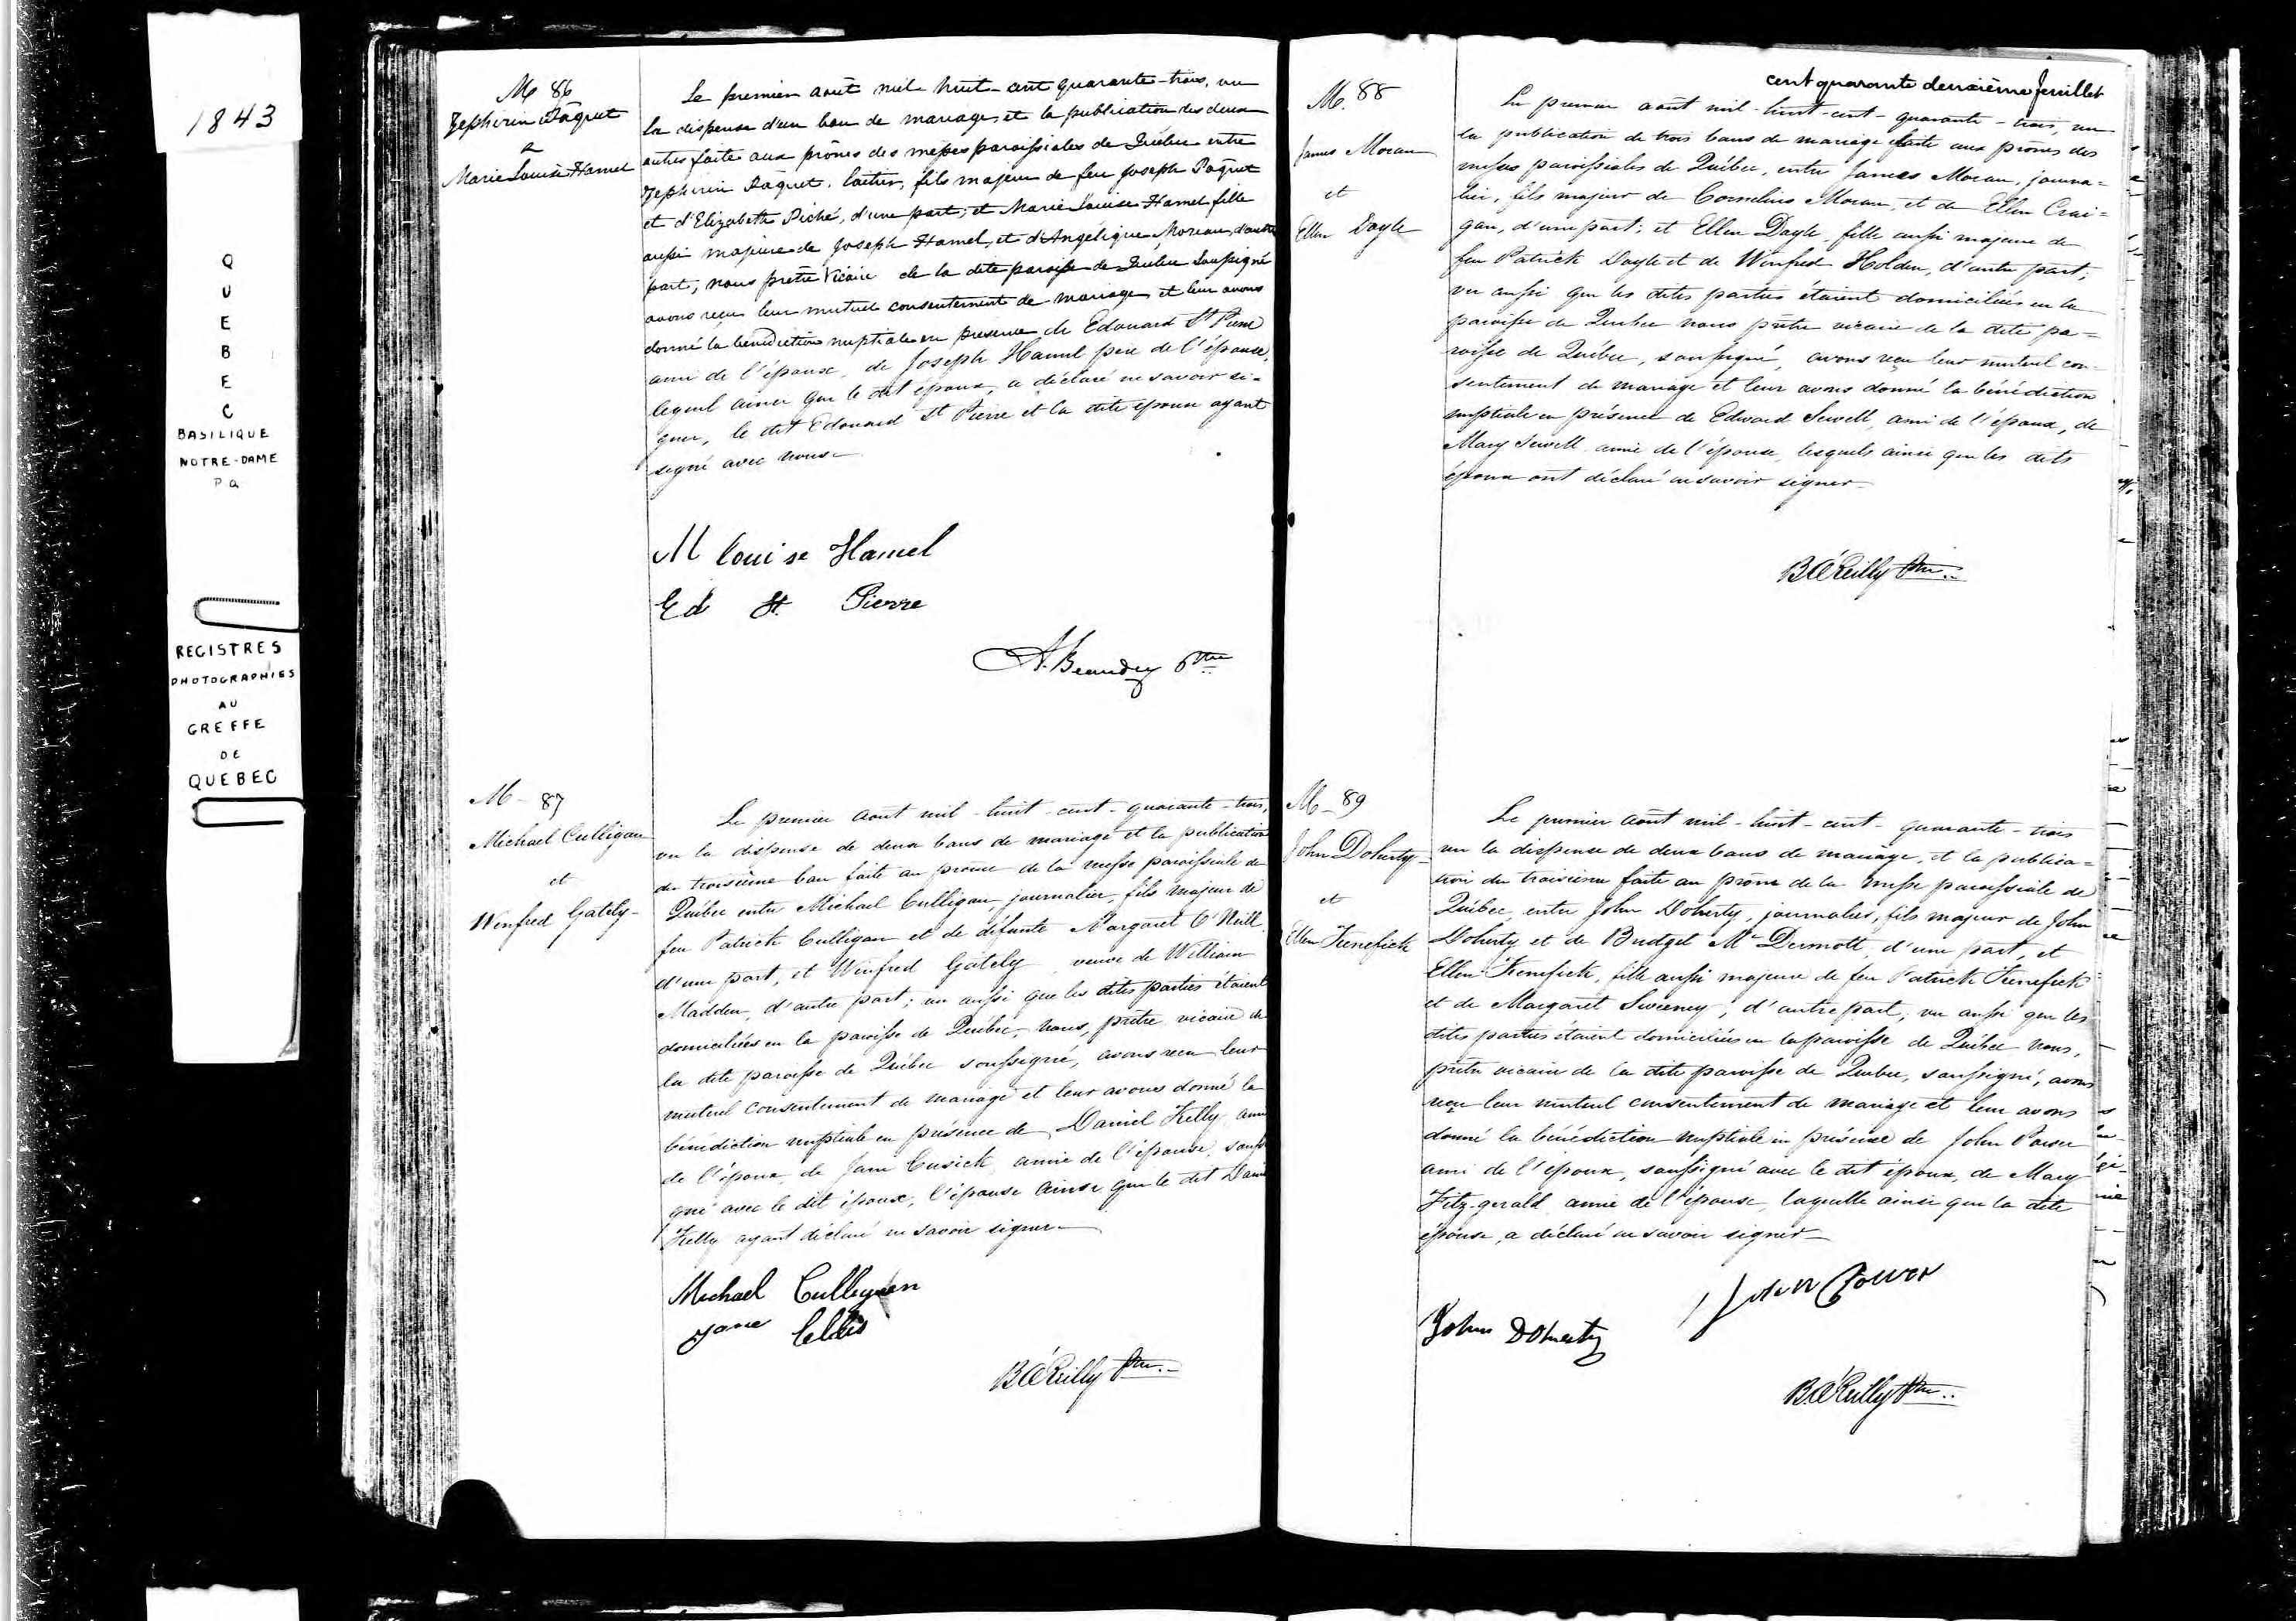 1843
QUEBEC
BASILIQUE
NOTRE-DAME
PQ
REGISTRES
PHOTOGRAPHIES
AU
GREFFE
DE
QUEBEC
M 86
Zephirin Pâquet
&
Marie Louise Hamel
Le premier août mil-huit-cent quarante-trois, vu
la dispense d'un ban de mariage et la publication des deux
autres faite aux prônes des messes paroissiales de Québec entre
Zephirin Pâquet, laitier, fils majeur de feu Joseph Pâquet
et d'Elizabeth Piché, d'une part; et Marie Louise Hamel fille
aussi majeure de Joseph Hamel, et d'Angelique Moreau, d'autre
part, nous prêtre Vicaire de la dite paroisse de Québec soussigné
avons reçu leur mutuel consentement de mariage et leur avons
donné la bénédiction nuptiale en présence de Edouard St Pierre
ami de l'époux, de Joseph Hamel père de l'épouse,
lequel ainsi que le dit époux, a déclaré ne savoir si-
gner, le dit Edouard St Pierre et la dite épouse ayant
signé avec nous
M Louise Hamel
Ed St. Pierre
A. Beaudry Ptre
M - 87
Michael Culligan
et
Winfred Gately-
Le premier Août mil-huit-cent-quarante-trois,
vu la dispense de deux bans de mariage et la publication
du troisième ban faite au prône de la messe paroissiale de
Québec entre Michael Culligan, journalier, fils majeur de
feu Patrick Culligan et de défunte Margaret O'Neill,
d'une part, et Winfred Gately, veuve de William
Madden, d'autre part; vu aussi que les dites parties étaient
domiciliées en la paroisse de Québec, nous, prêtre vicaire de
la dite paroisse de Québec soussigné, avons reçu leur
mutuel consentement de mariage et leur avons donné la
bénédiction nuptiale en présence de Daniel Kelly ami
de l'époux, de Jane Cusick amie de l'épouse, soussi
gné avec le dit époux, l'épouse ainsi que le dit Daniel
Kelly ayant déclaré ne savoir signer
Michael Culligan
Jane
B O'Reilly Ptre
cent quarante deuxième feuillet
M. 88
James Moran
et
Ellen Doyle
Le premier août mil-huit-cent-quarante-trois, vu
la publication de trois bans de mariage faite aux prônes des
messes paroissiales de Québec, entre James Moran, journa=
lier, fils majeur de Cornelius Moran, et de Ellen Crai=
gan, d'une part; et Ellen Doyle, fille aussi majeure de
feu Patrick Doyle et de Winfred Holden, d'autre part;
vu aussi que les dites parties étaient domiciliées en la
paroisse de Quebec nous prêtre vicaire de la dite pa=
roisse de Québec, soussigné, avons reçu leur mutuel con-
sentement de mariage et leur avons donné la bénédiction
nuptiale en présence de Edward Sewell, ami de l'époux, de
Mary Sewell amie de l'épouse, lesquels ainsi que les dits
époux ont déclaré ne savoir signer-
B O'Reilly Ptre
M - 89
John Doherty-
et
Ellen Kenefick
Le premier Août mil-huit-cent-quarante-trois
vu la dispense de deux bans de mariage, et la publica=
tion du troisième faite au prône de la messe paroissiale de
Québec, entre John Doherty, journalier, fils majeur de John
Doherty et de Bridget Mc Dermott, d'une part, et
Ellen Kenefick, fille aussi majeure de feu Patrick Kenefick
et de Margaret Sweeney, d'autre part; vu aussi que les
dites parties étaient domiciliées en la paroisse de Québec nous,
prêtre vicaire de la dite paroisse de Quebec, soussigné, avons
reçu leur mutuel consentement de mariage et leur avons
donné la bénédiction nuptiale en présence de John Power
ami de l'époux, soussigné avec le dit époux, de Mary
Fitz-gerald amie de l'épouse, laquelle ainsi que la dite
épouse, a déclaré ne savoir signer-
John Power
John Doherty
B. O'Reilly Ptre